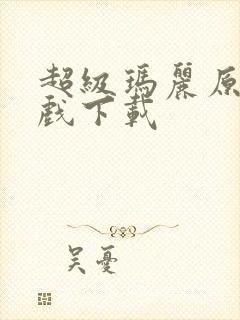 超级瑪麗原
戲下載
吴憂